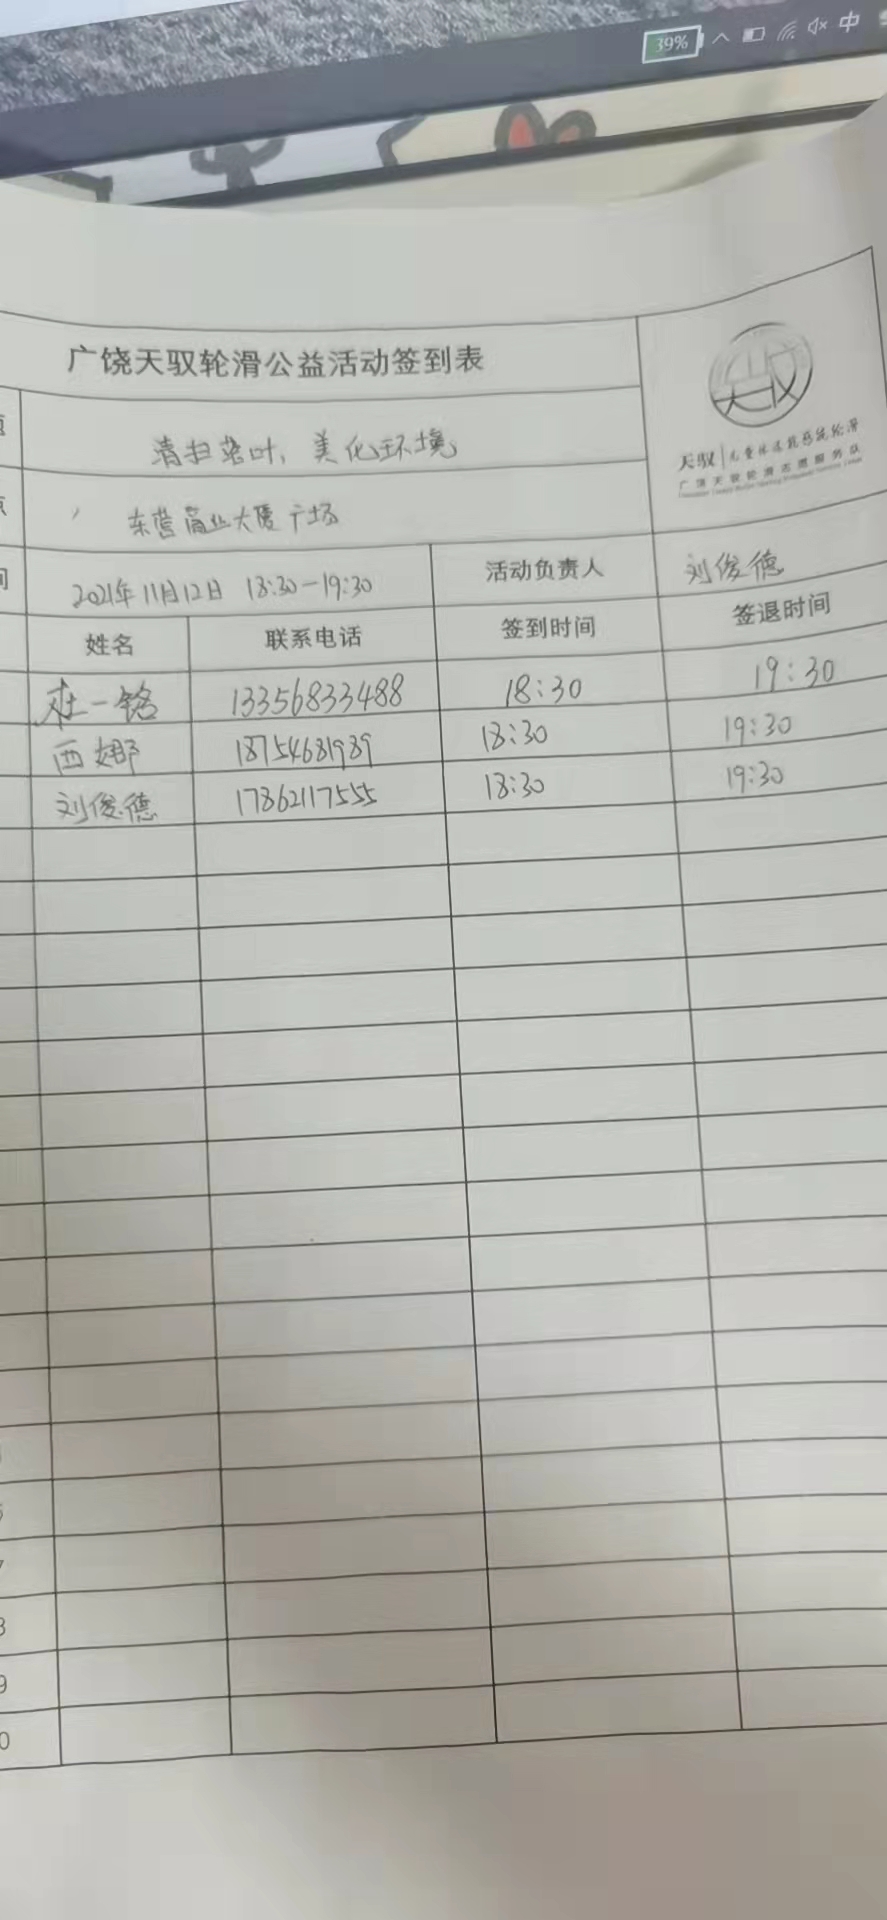 39%
中
广饶天驭轮滑公益活动签到表
清扫落叶，美化环境
东营商业大厦广场
天驭
广饶天驭轮滑志愿服务队
2021年11月12日 18:30-19:30 活动负责人 刘俊德
姓名 联系电话 签到时间 签退时间
杜一铭 13356833488 18:30 19:30
西娜 18754681989 18:30 19:30
刘俊德 17862117555 18:30 19:30
7
8
9
0